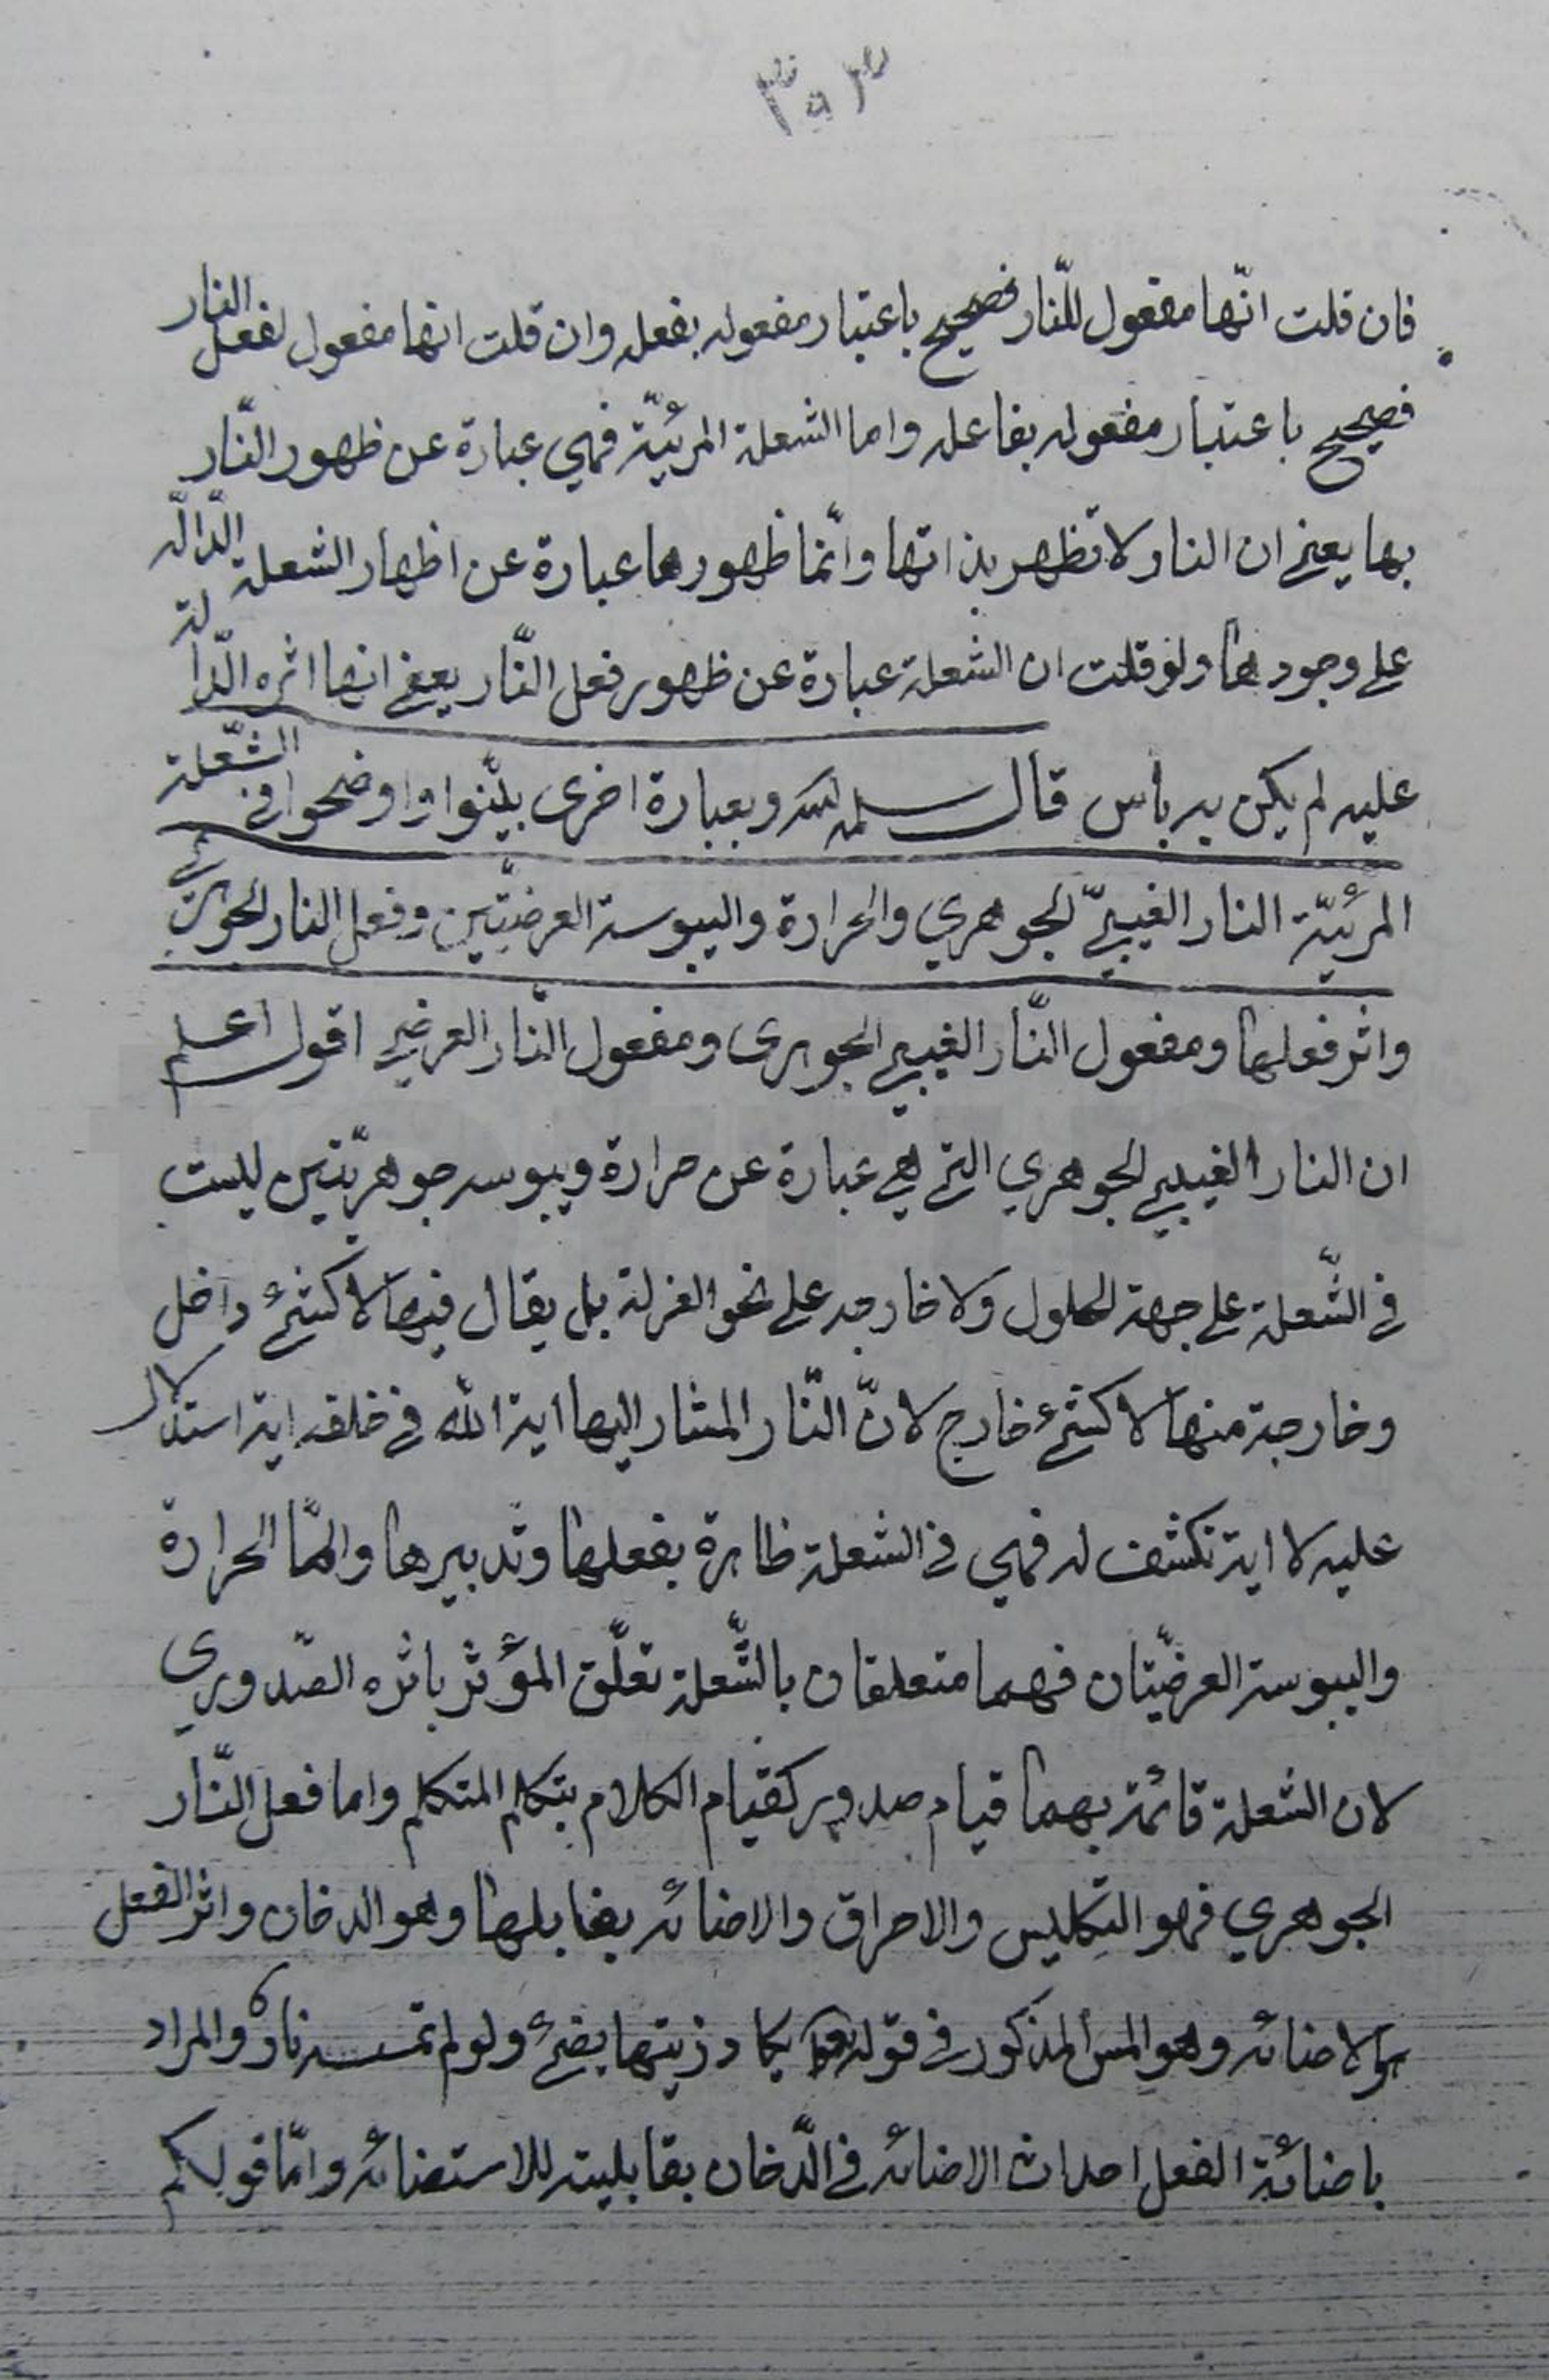 ٣٥٣
فان قلت انّها مفعول للنّار فصحيح باعتبار مفعوله بفعله وان قلت انها مفعول لفعل النار
فصحيح باعتبار مفعوله بفاعله واما الشعلة المرئيّة فهي عبارة عن ظهور النّار
بها يعني ان النار لا تظهر بذاتها وانّما ظهورها عبارة عن اظهار الشعلة الدّالّه
على وجودها ولو قلت ان الشعلة عبارة عن ظهور فعل النّار يعني انها اثره الدّالة
عليه لم يكن به باس قال سلمه الله وبعبارة اخرى بيّنوا واوضحوا في الشّعلة
المرئيّة النار الغيبيّ الجوهري والحرارة واليبوسة العرضيّتين وفعل النار الجوهري
واثر فعلها ومفعول النّار الغيبي الجوهرى ومفعول النّار العرضي اقول اعلم
ان النار الغيبي الجوهري التي هي عبارة عن حرارة ويبوسه جوهريّتين ليست
في الشّعلة على جهة الحلول ولا خارجه على نحو العزلة بل يقال فيها لا كشئ داخل
وخارجة منها لا كشئ خارج لانّ النّار المشار اليها اية الله في خلقه اية استدلال
عليه لا اية تكشف له فهي في الشعلة ظاهرة بفعلها وتدبيرها وامّا الحرارة
واليبوسة العرضيّتان فهما متعلقان بالشّعلة تعلّق المؤثر باثره الصّدوري
لان الشعلة قائمة بهما قيام صدور كقيام الكلام بتكلم المتكلم واما فعل النّار
الجوهري فهو التكليس والاحراق والاضائه بقابلها وهو الدخان واثر الفعل
هو الاضائه وهو المس المذكور في قوله تعالى يكاد زيتها يضئ ولو لم تمسسه نار والمراد
باضائة الفعل احداث الاضائه في الدّخان بقابليته للاستضائه وامّا قولكم